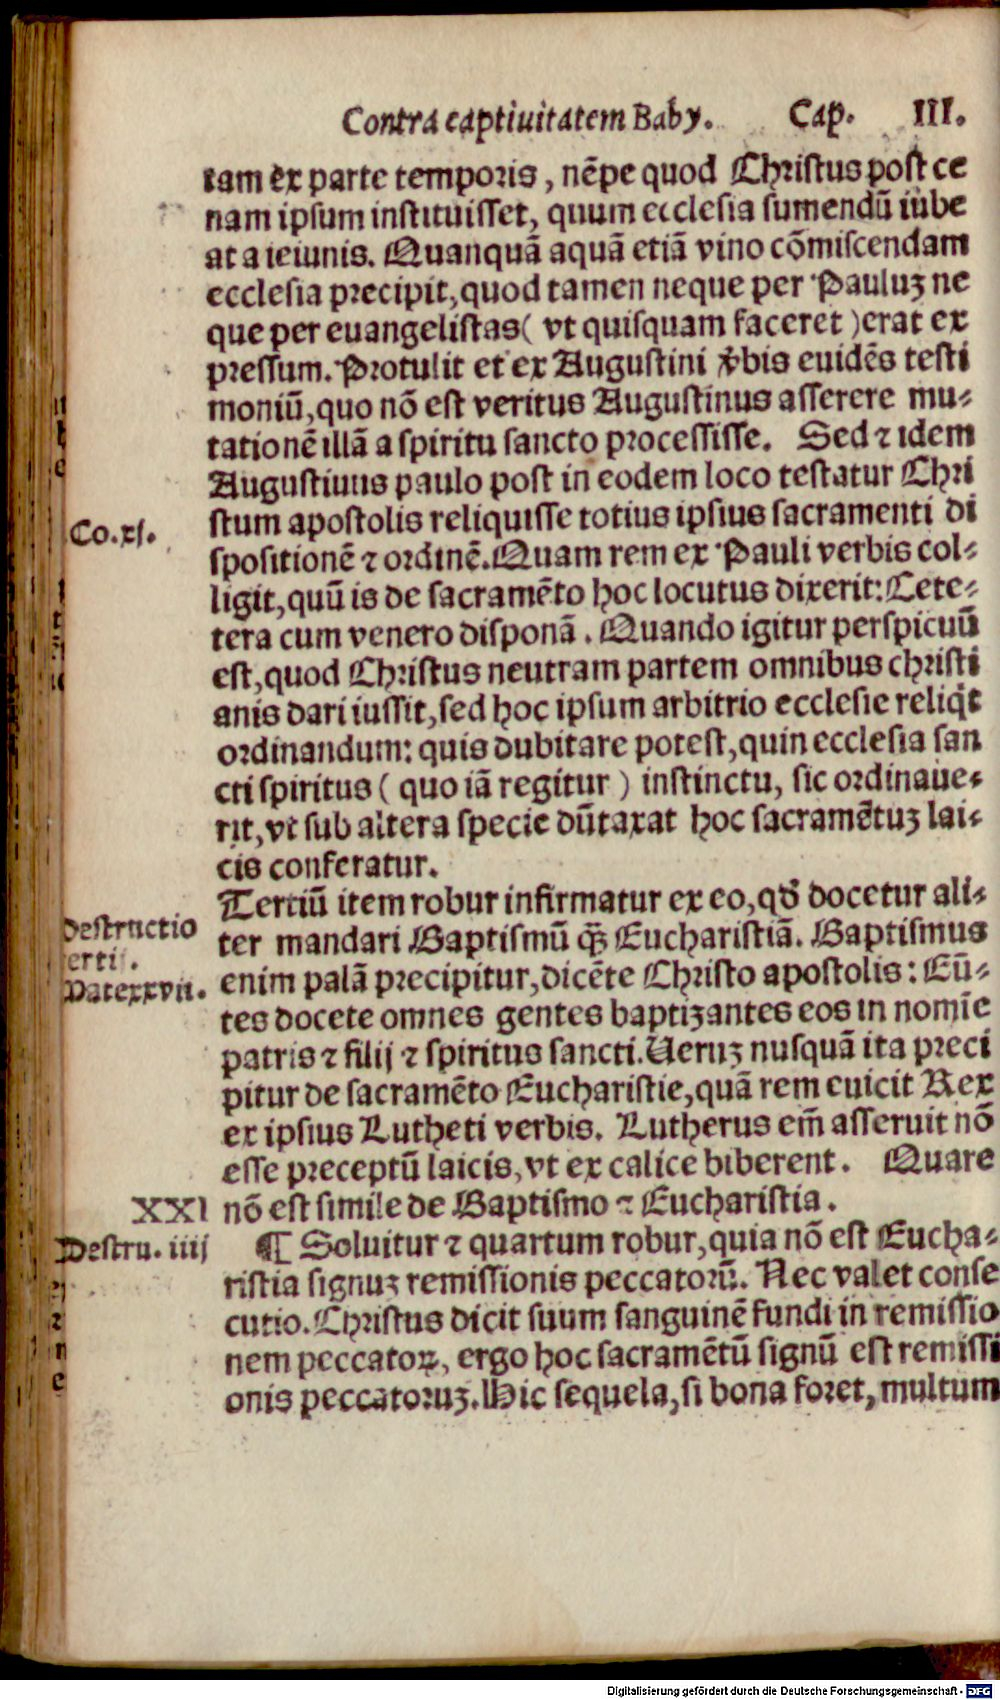 Contra captiuitatem Baby. Cap. III.
tam ex parte temporis, nẽpe quod Christus post ce
nam ipsum instituisset, quum ecclesia sumendũ iube
at a ieiunis. Quanquã aquã etiã vino cõmiscendam
ecclesia precipit, quod tamen neque per Pauluʒ ne
que per euangelistas ( vt quisquam faceret ) erat ex
pressum. Protulit et ex Augustini v̾bis euidẽs testi
moniũ, quo nõ est veritus Augustinus asserere mu⸗
tationẽ illã a spiritu sancto processisse. Sed ⁊ idem
Augustiuus paulo post in eodem loco testatur Chri
stum apostolis reliquisse totius ipsius sacramenti di
Co.xj.
spositionẽ ⁊ ordinẽ. Quam rem ex Pauli verbis col⸗
ligit, quũ is de sacramẽto hoc locutus dixerit: Cete⸗
tera cum venero disponã. Quando igitur perspicuũ
est, quod Christus neutram partem omnibus christi
anis dari iussit, sed hoc ipsum arbitrio ecclesie reliq̃t
ordinandum: quis dubitare potest, quin ecclesia san
cti spiritus ( quo iã regitur ) instinctu, sic ordinaue⸗
rit, vt sub altera specie dũtaxat hoc sacramẽtuʒ lai⸗
cis conferatur.
Tertiũ item robur infirmatur ex eo, qd̾ docetur ali⸗
Destructio
ter mandari Baptismũ q̃ʒ Eucharistiã. Baptismus
ertij.
enim palã precipitur, dicẽte Christo apostolis: Eũ⸗
Matexxvii.
tes docete omnes gentes baptiʒantes eos in nomĩe
patris ⁊ filij ⁊ spiritus sancti. Ueruʒ nusquã ita preci
pitur de sacramẽto Eucharistie, quã rem euicit Rex
ex ipsius Lutheti verbis. Lutherus em̃ asseruit nõ
esse preceptũ laicis, vt ex calice biberent. Quare
XXI nõ est simile de Baptismo ⁊ Eucharistia.
Destru. iiij ¶ Soluitur ⁊ quartum robur, quia nõ est Eucha⸗
ristia signuʒ remissionis peccatorũ. Nec valet conse
cutio. Christus dicit suum sanguinẽ fundi in remissio
nem peccatoꝝ, ergo hoc sacramẽtũ signũ est remissi
onis peccatoruʒ. Hic sequela, si bona foret, multum
Digitalisierung gefördert durch die Deutsche Forschungsgemeinschaft - DFG